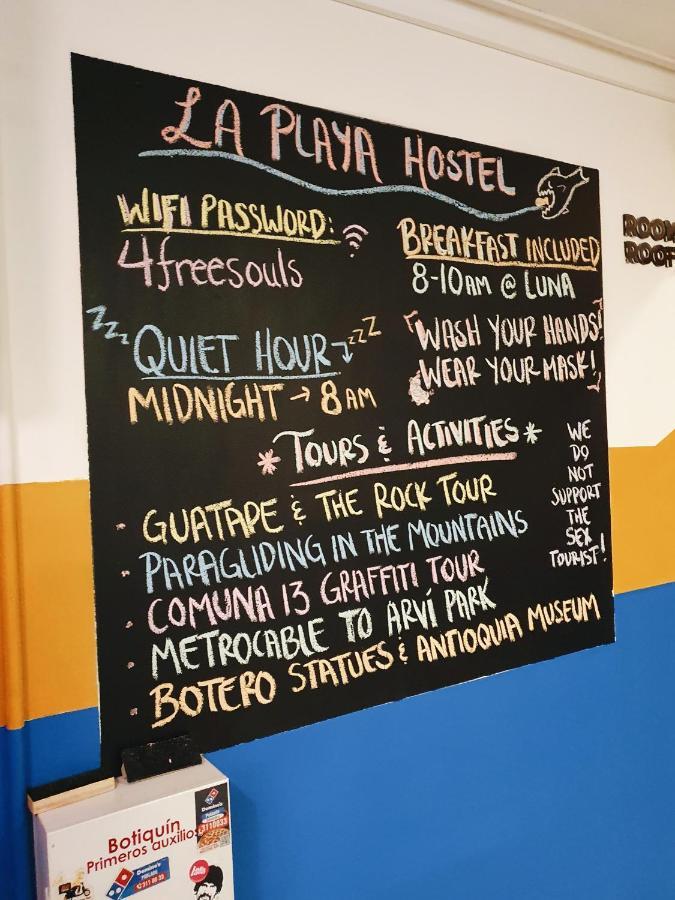 LA PLAYA HOSTEL
WIFI PASSWORD:
4freesouls
BREAKFAST INCLUDED
8-10AM @ LUNA
ZZZ QUIET HOUR ZZZ
MIDNIGHT → 8AM
WASH YOUR HANDS!
WEAR YOUR MASK!
* TOURS & ACTIVITIES *
· GUATAPE & THE ROCK TOUR
· PARAGLIDING IN THE MOUNTAINS
· COMUNA 13 GRAFFITI TOUR
· METROCABLE TO ARVÍ PARK
· BOTERO STATUES & ANTIOQUIA MUSEUM
WE
DO
NOT
SUPPORT
THE
SEX
TOURIST!
ROOM
ROOF
Botiquín
Primeros auxilios
Domino's
3110033
Domino's